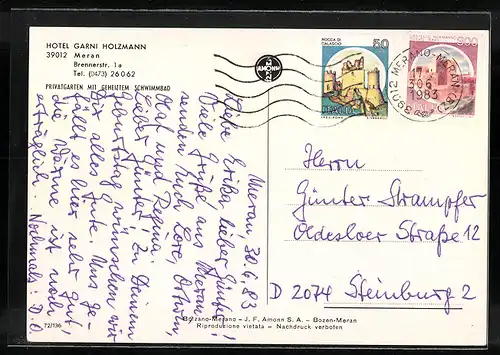 HOTEL GARNI HOLZMANN
39012 Meran
Brennerstr. 1a
Tel. (0473) 26062
PRIVATGARTEN MIT GEHEIZTEM SCHWIMMBAD
AMONN
ROCCA DI
CALASCIO
50
ITALIA
300
39012 MERANO-MERAN (BZ)
30.6
1983
Meran 30.6.83
Liebe Erika, lieber Günter!
Viele Grüße aus Meran
senden Euch Lore, Ottwin,
Olaf und Regina.
Lieber Günter! Zu Deinem
Geburtstag wünschen wir
Dir alles Gute. Uns ge-
fällt es hier sehr gut.
die Wärme ist noch
erträglich. Nochmals! D.O.
Herrn
Günter Strampfer
Oldesloer Straße 12
D 2074 Steinburg 2
72/136
Bolzano-Merano - J. F. Amonn S. A. - Bozen-Meran
Riproduzione vietata - Nachdruck verboten